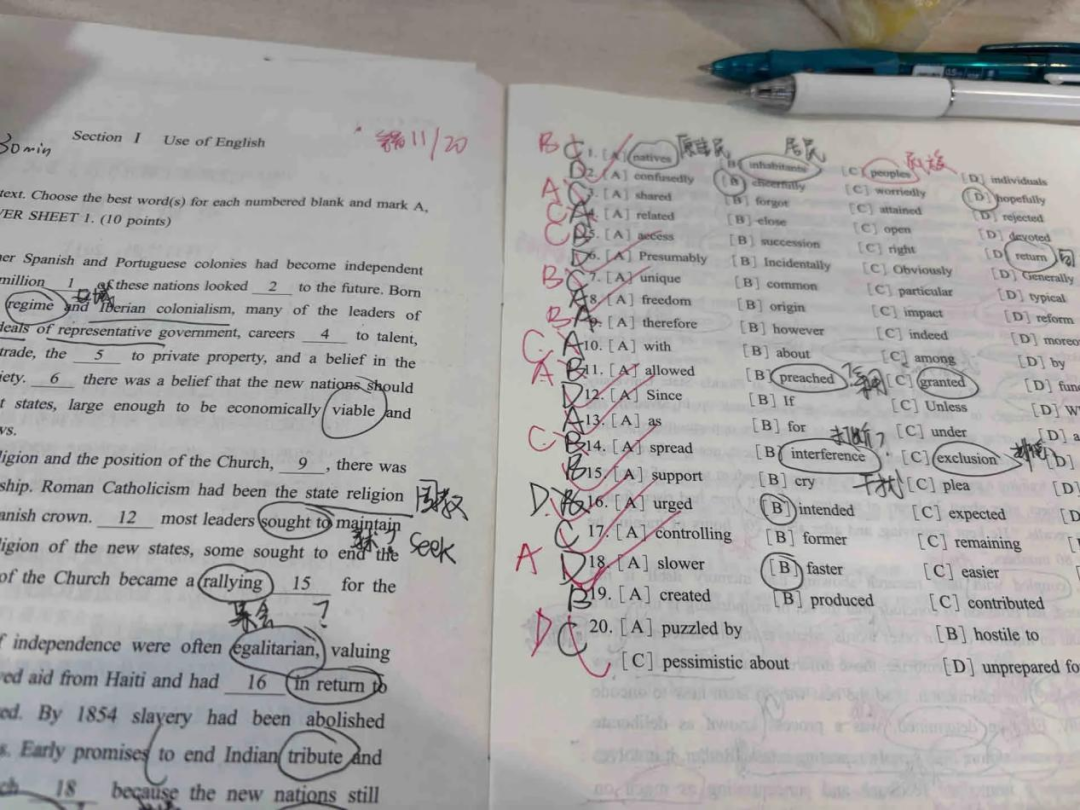 30 min
Section I Use of English
11/20
text. Choose the best word(s) for each numbered blank and mark A,
ER SHEET 1. (10 points)
er Spanish and Portuguese colonies had become independent
million 1 of these nations looked 2 to the future. Born
regime and Iberian colonialism, many of the leaders of
deals of representative government, careers 4 to talent,
trade, the 5 to private property, and a belief in the
iety. 6 there was a belief that the new nations should
t states, large enough to be economically viable and
ws.
ligion and the position of the Church, 9 , there was
ship. Roman Catholicism had been the state religion 国教
anish crown. 12 most leaders sought to maintain
寻求 seek
ligion of the new states, some sought to end the
of the Church became a rallying 15 for the
集会 ?
f independence were often egalitarian, valuing
ved aid from Haiti and had 16 in return to
ed. By 1854 slavery had been abolished
s. Early promises to end Indian tribute and
ch 18 because the new nations still
原住民 居民 民族
B C 1. [A] natives [B] inhabitants [C] peoples [D] individuals
D 2. [A] confusedly [B] cheerfully [C] worriedly [D] hopefully
A C 3. [A] shared [B] forgot [C] attained [D] rejected
C A 4. [A] related [B] close [C] open [D] devoted
C D 5. [A] access [B] succession [C] right [D] return
D 6. [A] Presumably [B] Incidentally [C] Obviously [D] Generally
B C 7. [A] unique [B] common [C] particular [D] typical
A 8. [A] freedom [B] origin [C] impact [D] reform
B A 9. [A] therefore [B] however [C] indeed [D] moreo
C A 10. [A] with [B] about [C] among [D] by
A B 11. [A] allowed [B] preached [C] granted [D] fun
D 12. [A] Since [B] If [C] Unless [D] W
A 13. [A] as [B] for [C] under [D] a
C B 14. [A] spread [B] interference 干扰 [C] exclusion [D]
B 15. [A] support [B] cry [C] plea [D]
D 16. [A] urged [B] intended [C] expected [D]
C 17. [A] controlling [B] former [C] remaining
A D 18. [A] slower [B] faster [C] easier
B 19. [A] created [B] produced [C] contributed
D C 20. [A] puzzled by [B] hostile to
[C] pessimistic about [D] unprepared fo